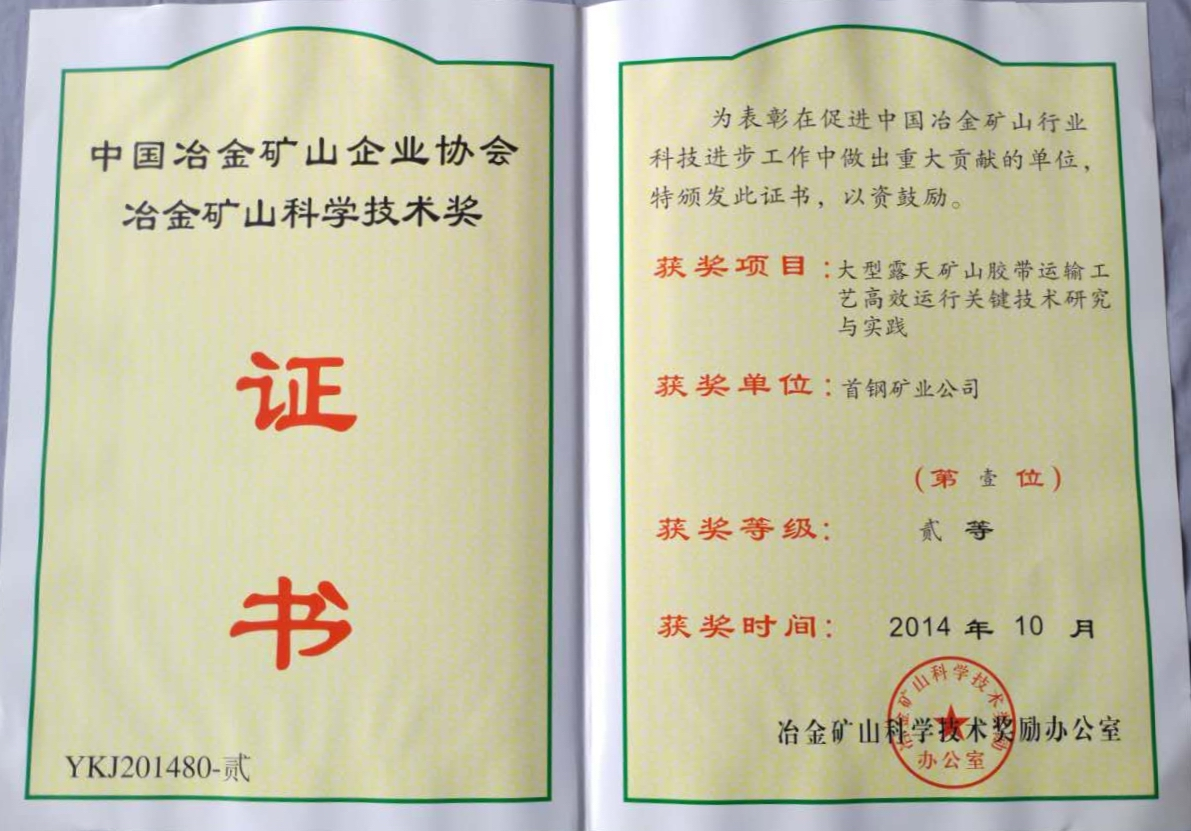 中国冶金矿山企业协会
冶金矿山科学技术奖
证
书
YKJ201480-贰
为表彰在促进中国冶金矿山行业
科技进步工作中做出重大贡献的单位，
特颁发此证书，以资鼓励。
获奖项目：大型露天矿山胶带运输工
艺高效运行关键技术研究
与实践
获奖单位：首钢矿业公司
（第 壹 位）
获奖等级： 贰 等
获奖时间： 2014 年 10 月
冶金矿山科学技术奖励办公室
冶金矿山科学技术奖励
办公室